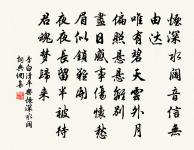 煙深水闊音信無
由達
唯有碧天雲外月
偏照懸懸離別
盡日感事傷懷愁
眉似鎖難開
夜夜長留半被待
君魂夢歸來
李白清平樂煙深水闊
詞典網集